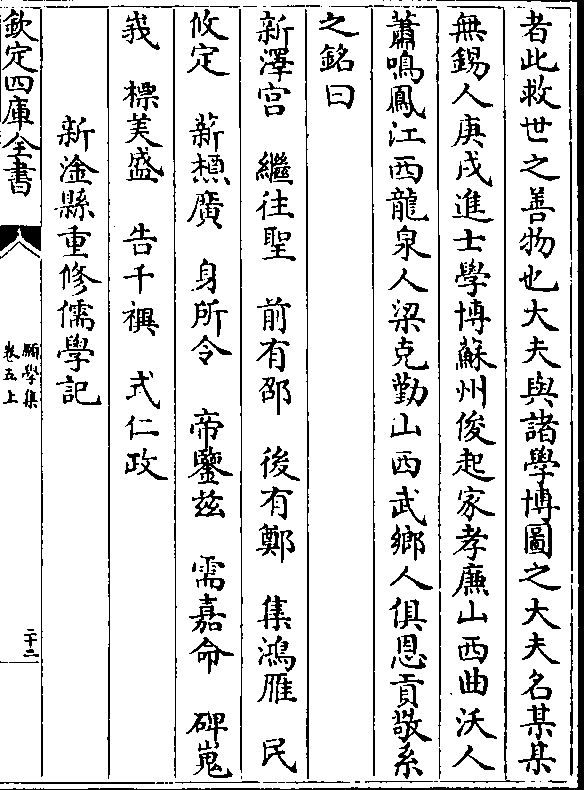 者此救世之善物也大夫與諸學博圖之大夫名某某
無錫人庚戌進士學博蘇州俊起家孝廉山西曲沃人
蕭鳴鳳江西龍泉人梁克勤山西武鄉人俱恩貢敬系
之銘曰
新澤宫　繼往聖　前有邵　後有鄭　集鴻雁　民
攸定　薪槱廣　身所令　帝鑒兹　需嘉命　碑嵬
峩　標美盛　告千禩　式仁政
新淦縣重修儒學記
欽定四庫全書
願學集
卷五上
二十二